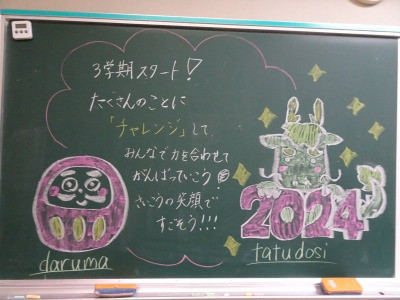 3学期スタート!
たくさんのことに
「チャレンジ」して、
みんなで力を合わせて
がんばっていこう
さいこうの笑顔で
すごそう!!!
2024
daruma
tatudosi